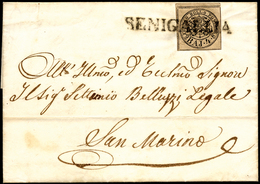 SENIGALLIA
All' Illmo, ed Eccllmo Signore
Il Sig. Settimio Belluzzi Legale
San Marino